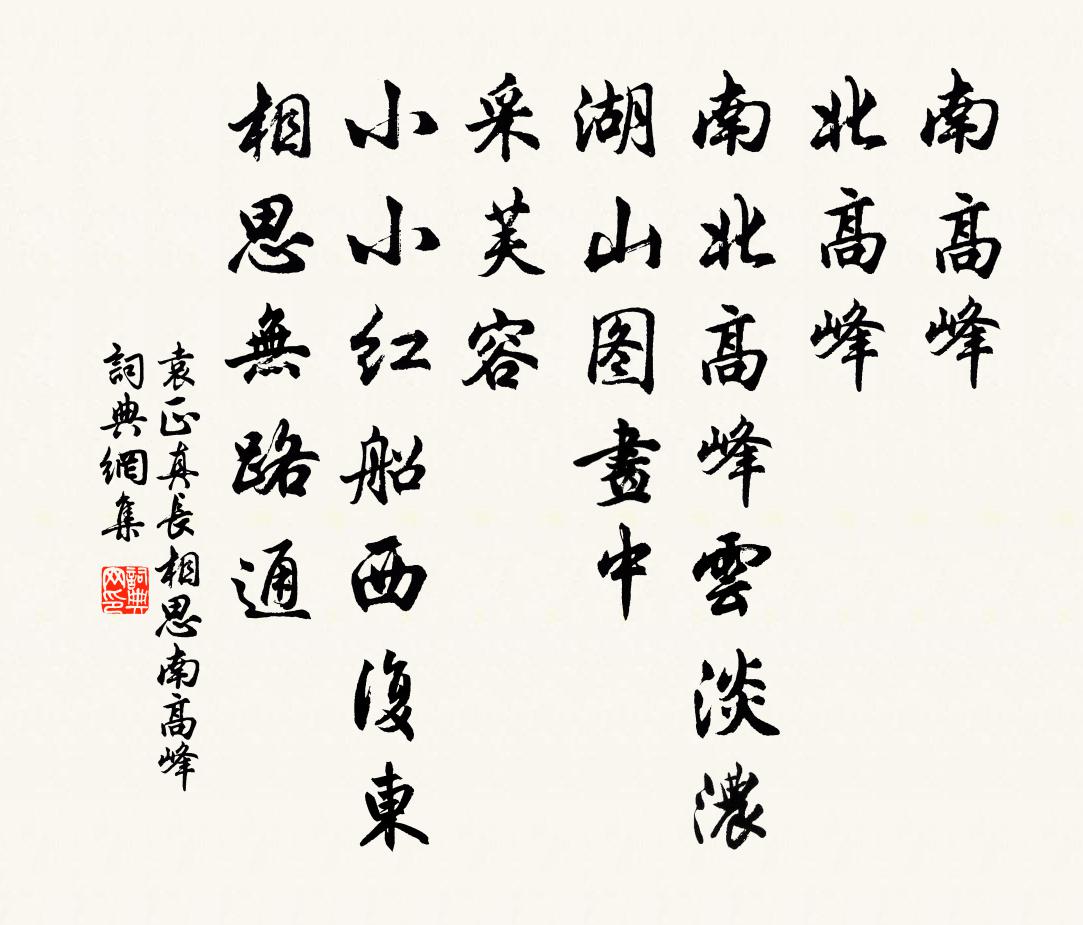 南髙峰
北髙峰
南北髙峰雲淡濃
湖山图畫中
采芙容
小小红船西復東
相思無路通
袁正真長相思南髙峰
詞典網集
詞典
网印